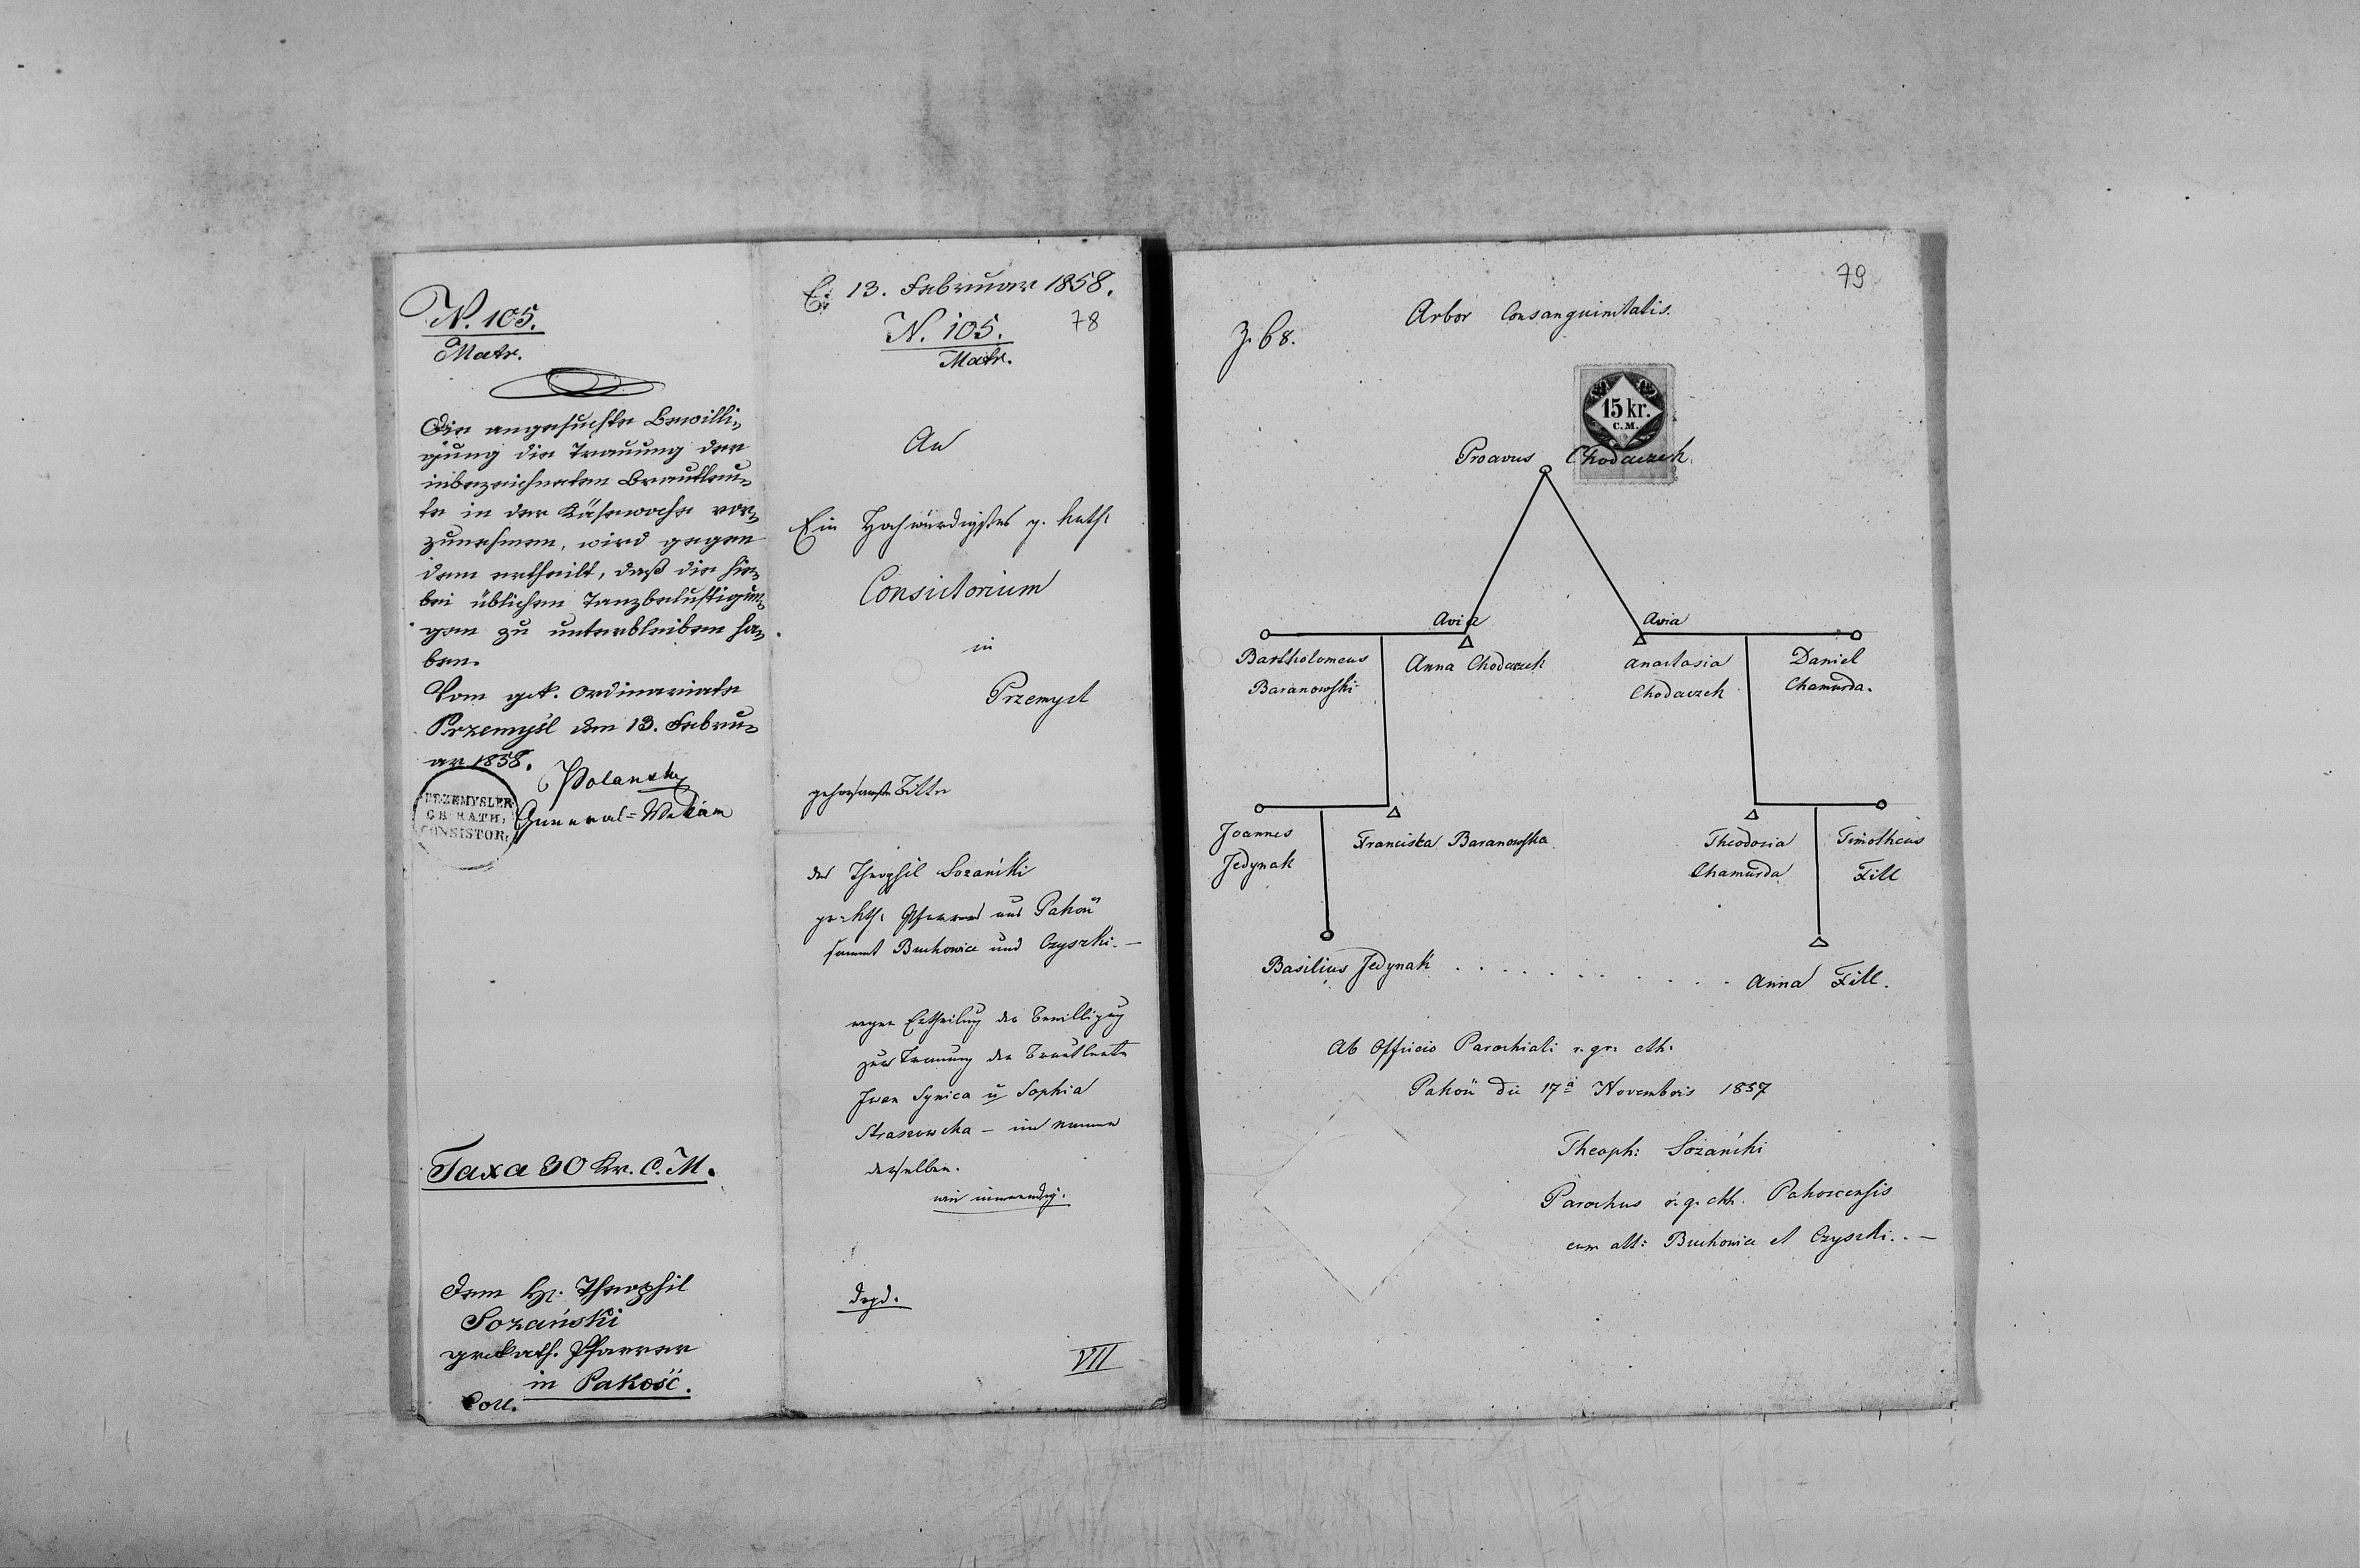 N. 105.
Matr.
Die angesuchte Bewilli-
gung die Trauung der
inbezeichneten Brautleu-
te in der Käsewoche vor-
zunehmen, wird gegen
dem ertheilt, daß die hie-
bei üblichen Tanzbelustigun-
gen zu unterbleiben ha-
ben.
Vom gr.k. Ordinariate
Przemyśl den 13. Febru-
ar 1858.
Polansky
PRZEMYSLER
GR. KATH.
CONSISTOR.
General=
Taxa 30 Kr. C. M.
Dem H. Theophil
Sozański
gr.kath. Pfarrer
in Pakość.
Coll.
E: 13. Februar 1858.
78
N. 105.
Matr.
An
Ein Hochwürdigstes g. kath.
Consistorium
in
Przemysl
gehorsamste Bitte
des Theophil Sozański
gr: kth: Pfarrers aus Pakość
sammt Buchowice und Czyszki. —
wegen Ertheilung der Bewilligung
zur Trauung der Brautleute
Iwan Synica u Sophia
im Namen
derselben.
wie inwendig.
VII
79
Arbor Consanguinitatis.
Z. 68.
15 kr.
C. M.
Proavus Chodaczek
Avia Avia
Bartholomeus Anna Chodaczek Anastasia Daniel
Baranowski Chodaczek Chamurda.
Joannes Franciska Baranowska Theodosia Timotheus
Jedynak Chamurda Fill
Basilius Jedynak . . . . . . . . . . Anna Fill.
Ab Officio Parochiali r. gr: cth:
Pakość die 17ª Novembris 1857
Theoph: Sozański
Parochus r. g. cth. Pakoscensis
cum att: Buchowice et Czyszki. . —